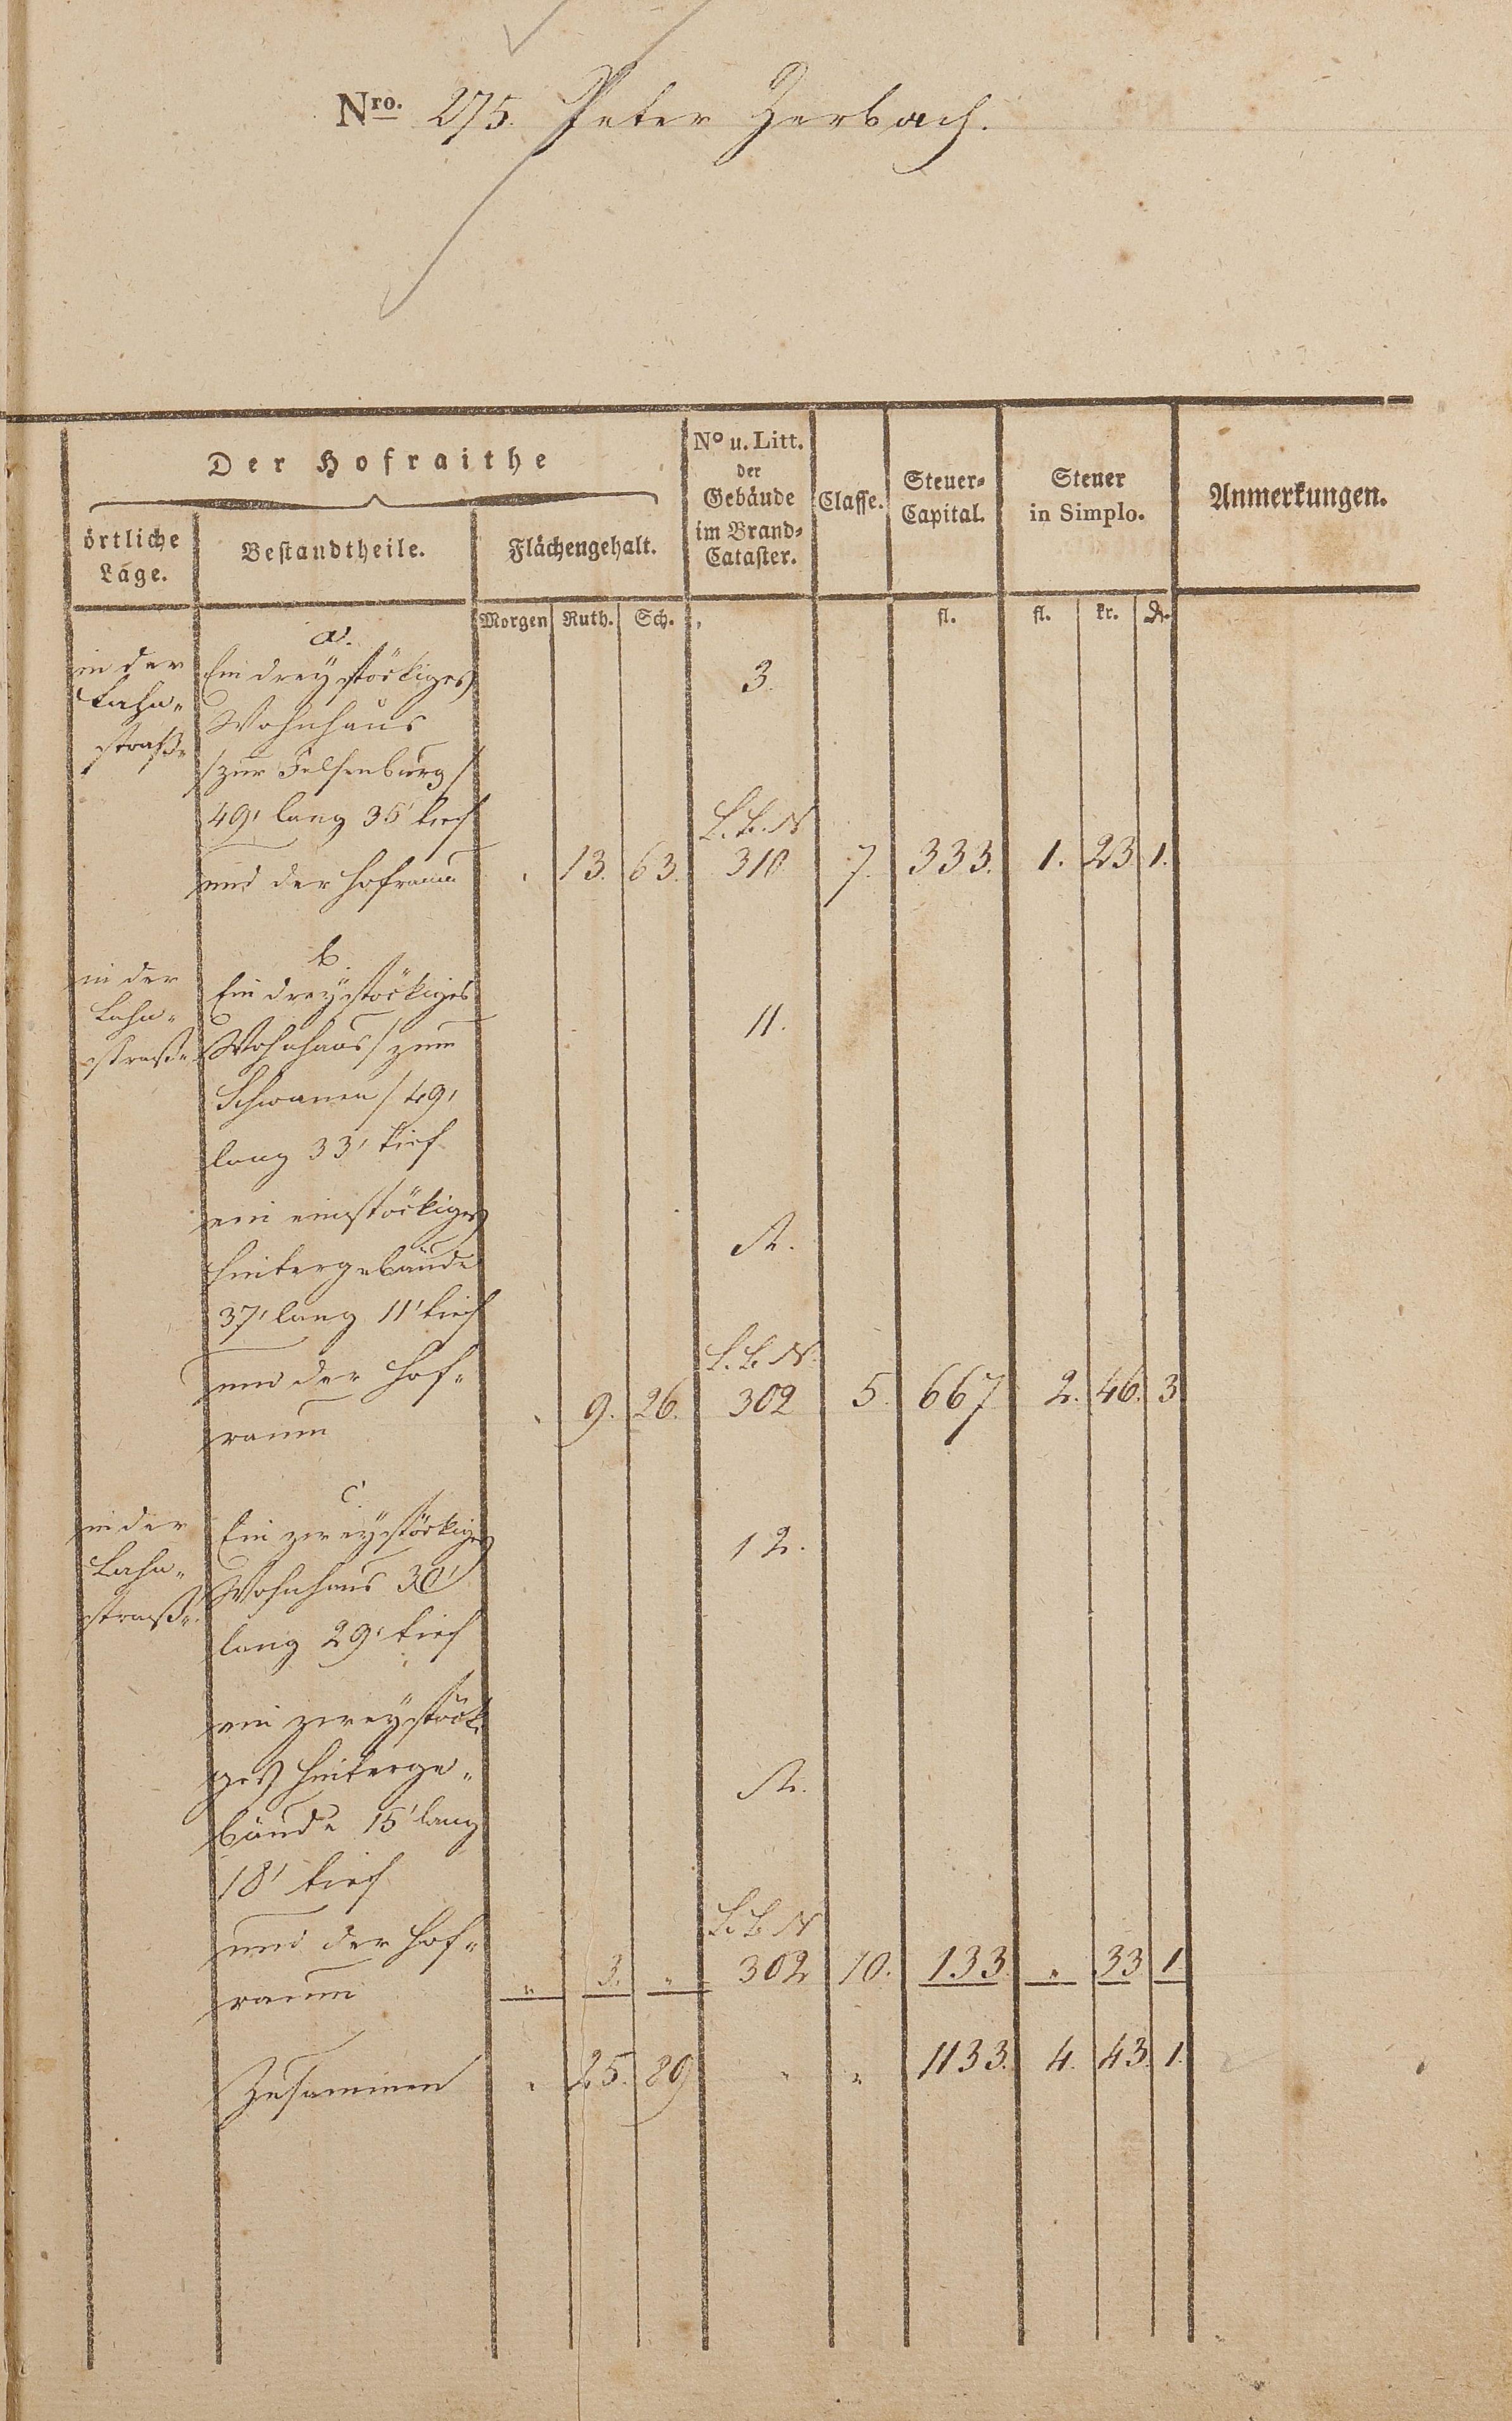 Nro. 275. Peter Zerbach.
Der Hofraithe
örtliche Lage.
Bestandtheile.
Flächengehalt.
No u. Litt. der Gebäude im Brand-Cataster.
Classe.
Steuer-Capital.
Steuer in Simplo.
Anmerkungen.
Morgen Ruth. Sch. fl. fl. kr. d.
a.
in der Ein dreystöckiges 3.
Lahn- Wohnhaus
straße /zur Felsenburg/
49' lang 35' tief L. B. N
und der Hofraum " 13. 63. 310 7. 333. 1. 23. 1.
b.
in der Ein dreystöckiges
Lahn- Wohnhaus/zum 11.
straße Schwanen/ 49'
lang 33' tief
ein einstöckiges
Hintergebäude A.
37' lang 11' tief
und der Hof- L. B. N.
raum " 9. 26. 302 5. 667 2. 46. 3
c.
in der Ein zweystöckiges 12.
Lahn- Wohnhaus 30'
straße. lang 29' tief
ein zweystöcki
ges Hinterge- A.
bäude 15' lang
18' tief
und der Hof- L. B. N
raum " 3. " 302 10. 133 " 33 1
Zusammen " 25. 89 " " 1133. 4. 43. 1.